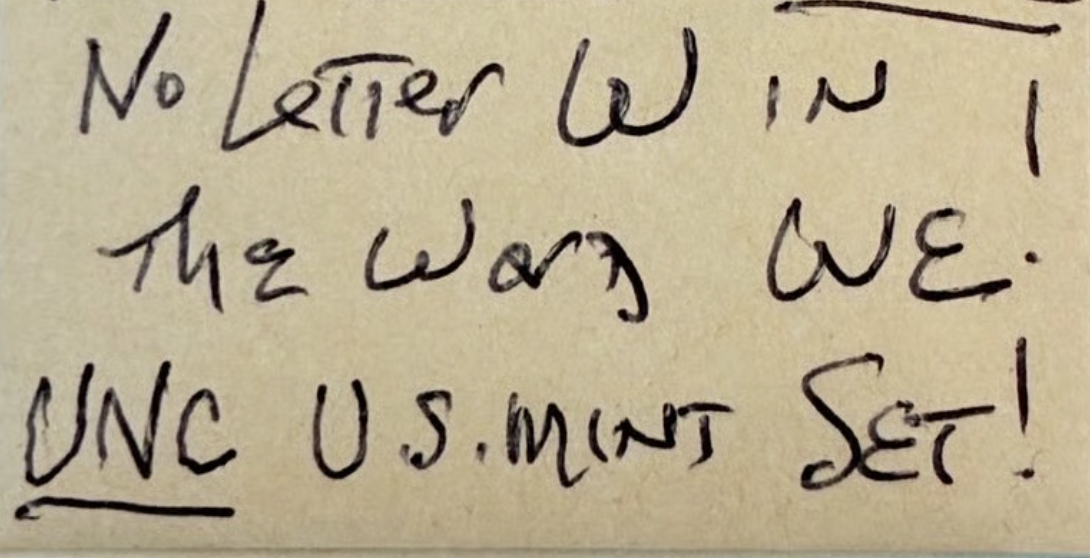 No Letter W IN
The Word WE!
UNC U.S. MINT SET!